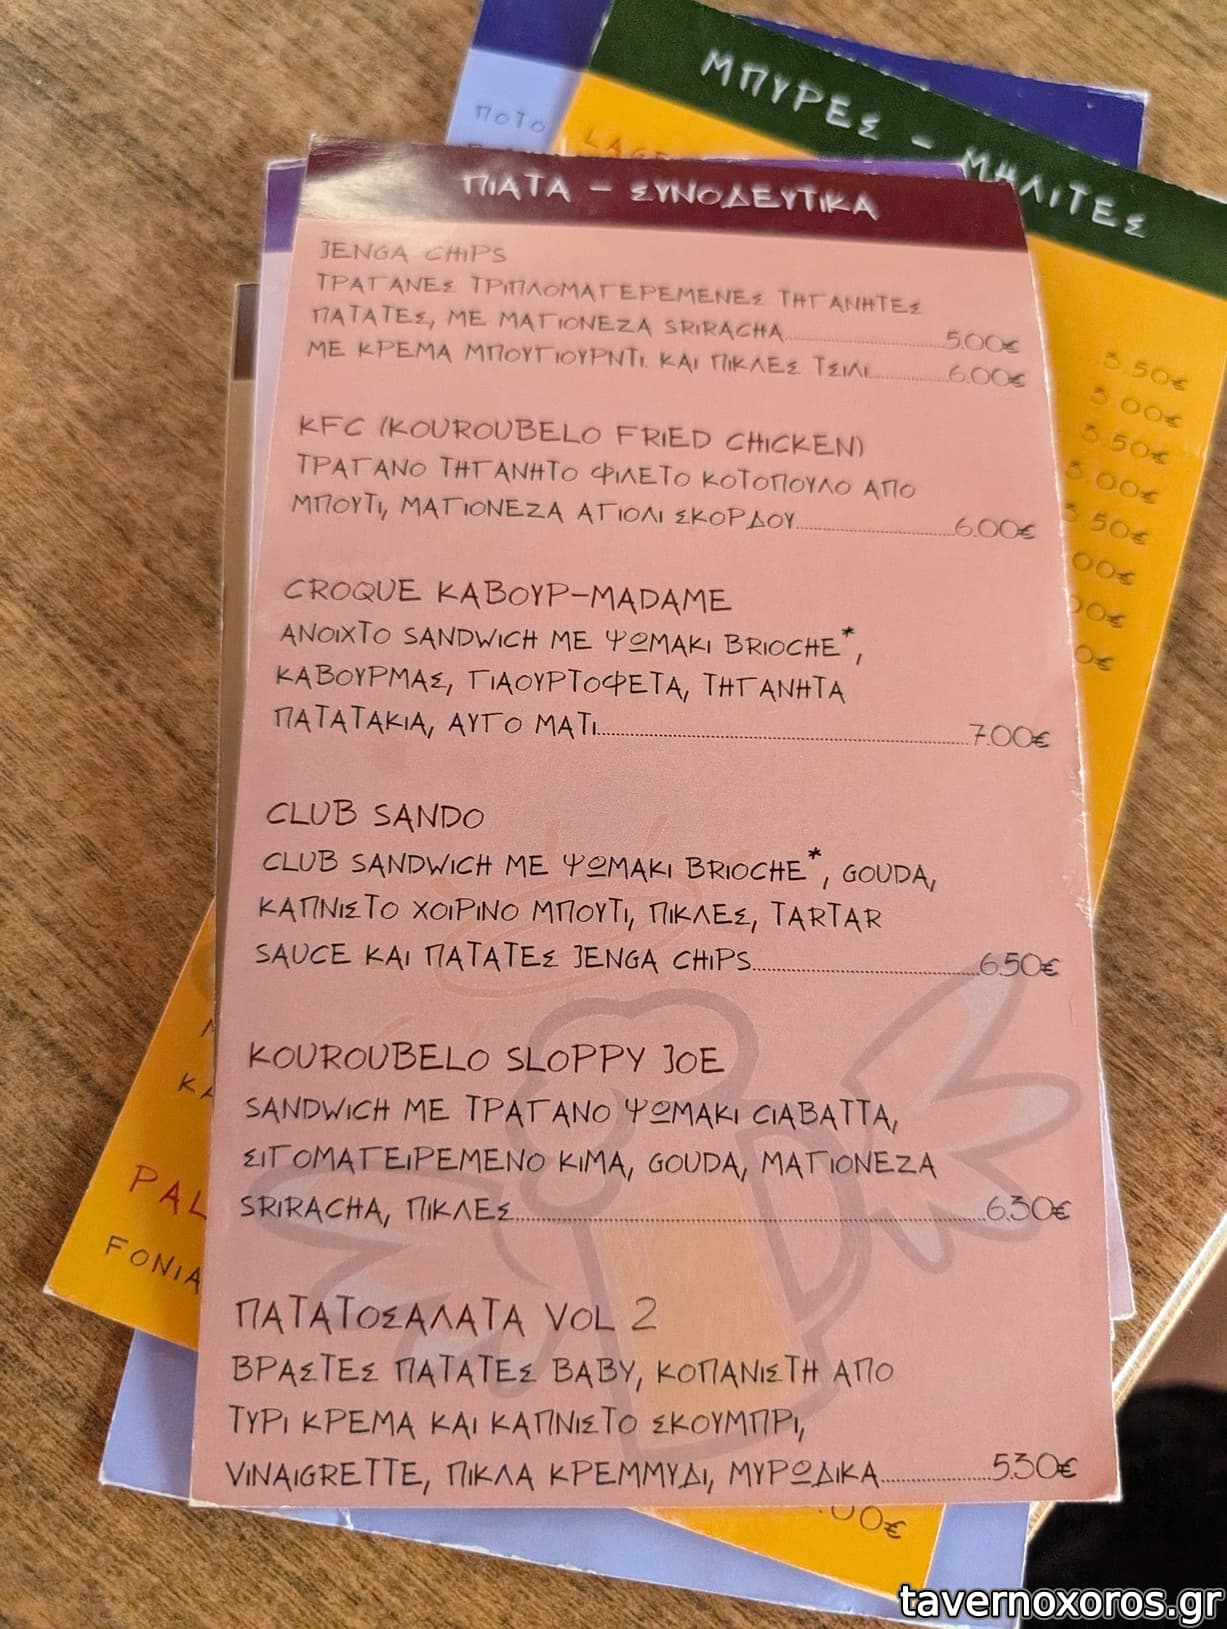 ΜΠΥΡΕΣ - ΜΗΛΙΤΕΣ
ΠΟΤΟ
ΠΙΑΤΑ - ΣΥΝΟΔΕΥΤΙΚΑ
JENGA CHIPS
ΤΡΑΓΑΝΕΣ ΤΡΙΠΛΟΜΑΓΕΡΕΜΕΝΕΣ ΤΗΓΑΝΗΤΕΣ
ΠΑΤΑΤΕΣ, ΜΕ ΜΑΓΙΟΝΕΖΑ SRIRACHA 5.00€
ΜΕ ΚΡΕΜΑ ΜΠΟΥΓΙΟΥΡΝΤΙ ΚΑΙ ΠΙΚΛΕΣ ΤΣΙΛΙ 6.00€
KFC (KOUROUBELO FRIED CHICKEN)
ΤΡΑΓΑΝΟ ΤΗΓΑΝΗΤΟ ΦΙΛΕΤΟ ΚΟΤΟΠΟΥΛΟ ΑΠΟ
ΜΠΟΥΤΙ, ΜΑΓΙΟΝΕΖΑ ΑΓΙΟΛΙ ΣΚΟΡΔΟΥ 6.00€
CROQUE ΚΑΒΟΥΡ-MADAME
ΑΝΟΙΧΤΟ SANDWICH ΜΕ ΨΩΜΑΚΙ BRIOCHE*,
ΚΑΒΟΥΡΜΑΣ, ΓΙΑΟΥΡΤΟΦΕΤΑ, ΤΗΓΑΝΗΤΑ
ΠΑΤΑΤΑΚΙΑ, ΑΥΓΟ ΜΑΤΙ 7.00€
CLUB SANDO
CLUB SANDWICH ΜΕ ΨΩΜΑΚΙ BRIOCHE*, GOUDA,
ΚΑΠΝΙΣΤΟ ΧΟΙΡΙΝΟ ΜΠΟΥΤΙ, ΠΙΚΛΕΣ, TARTAR
SAUCE ΚΑΙ ΠΑΤΑΤΕΣ JENGA CHIPS 6.50€
KOUROUBELO SLOPPY JOE
SANDWICH ΜΕ ΤΡΑΓΑΝΟ ΨΩΜΑΚΙ CIABATTA,
ΣΙΓΟΜΑΓΕΙΡΕΜΕΝΟ ΚΙΜΑ, GOUDA, ΜΑΓΙΟΝΕΖΑ
SRIRACHA, ΠΙΚΛΕΣ 6.30€
ΠΑΤΑΤΟΣΑΛΑΤΑ VOL 2
ΒΡΑΣΤΕΣ ΠΑΤΑΤΕΣ BABY, ΚΟΠΑΝΙΣΤΗ ΑΠΟ
ΤΥΡΙ ΚΡΕΜΑ ΚΑΙ ΚΑΠΝΙΣΤΟ ΣΚΟΥΜΠΡΙ,
VINAIGRETTE, ΠΙΚΛΑ ΚΡΕΜΜΥΔΙ, ΜΥΡΩΔΙΚΑ 5.30€
3.50€
3.00€
3.50€
3.00€
3.50€
PAL
FONIA
tavernoxoros.gr